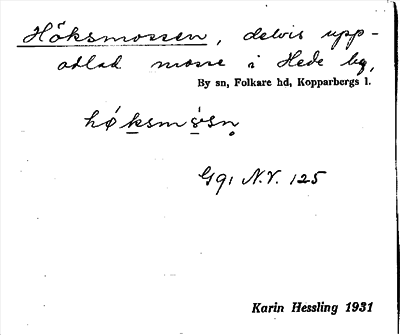 Höksmossen, delvis upp-
odlad mosse i Hede by,
By sn, Folkare hd, Kopparbergs l.
høksmòsn̥
Gg 1 N.V. 125
Karin Hessling 1931